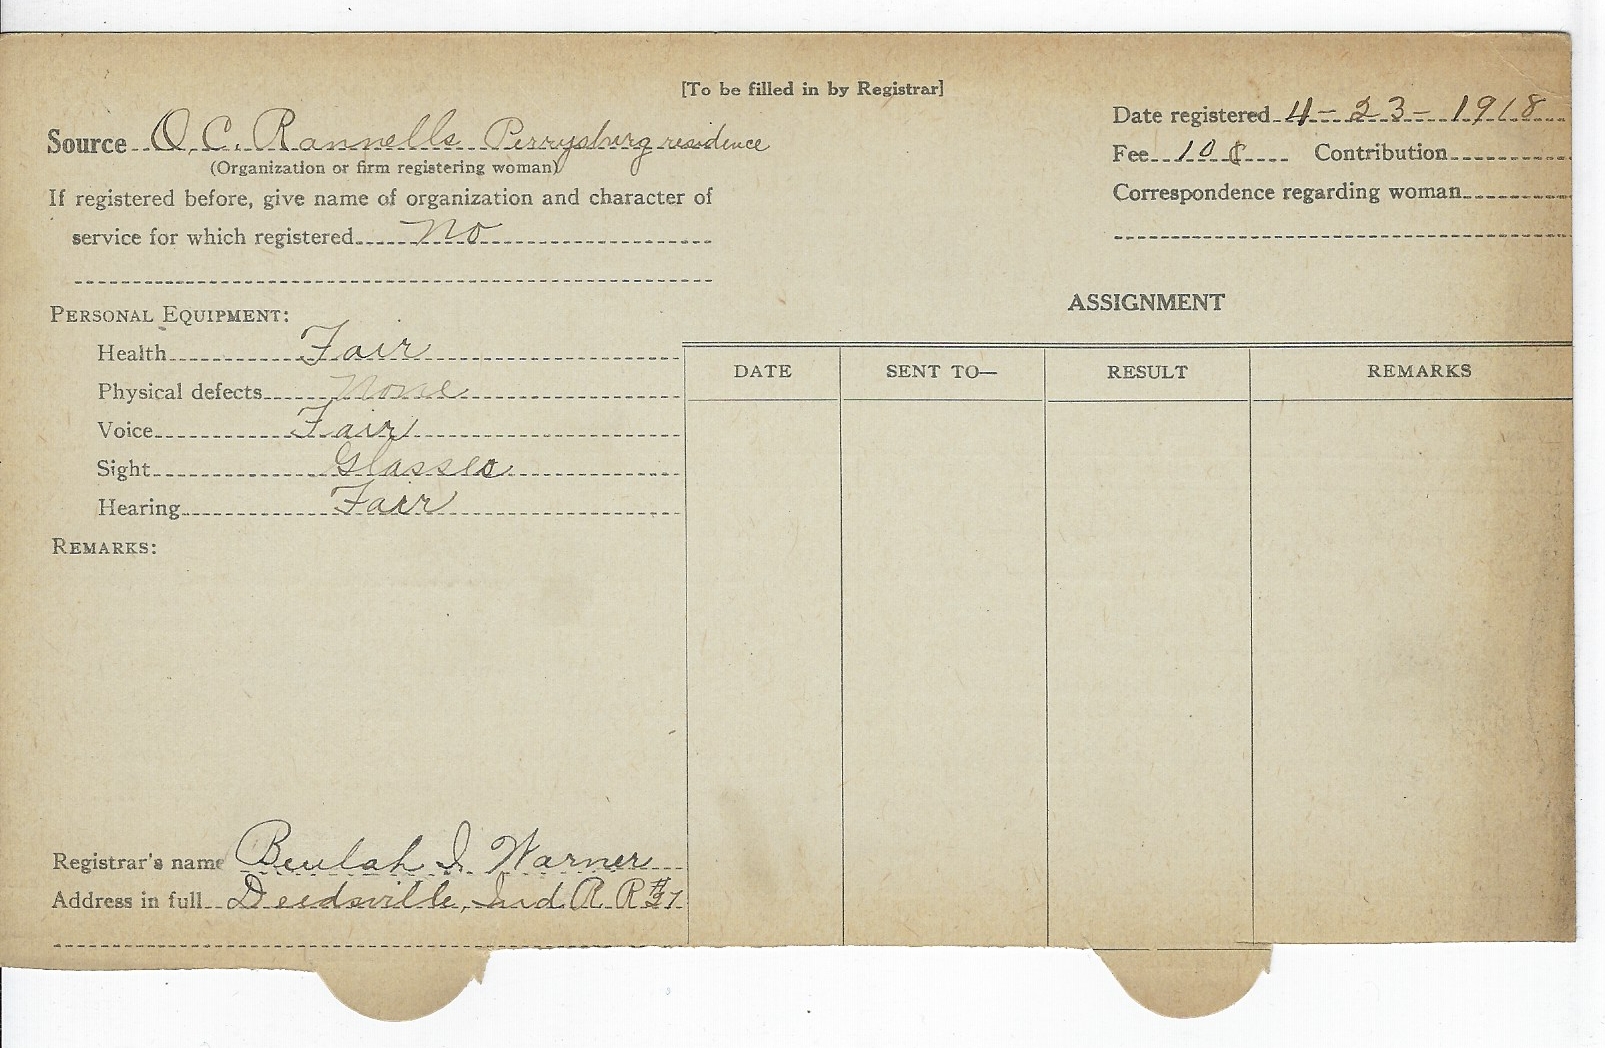 [To be filled in by Registrar]
Source O. C. Rannells Perrysburg residence
(Organization or firm registering woman)
If registered before, give name of organization and character of
service for which registered No
Date registered 4-23-1918
Fee 10¢ Contribution
Correspondence regarding woman
PERSONAL EQUIPMENT:
Health Fair
Physical defects None
Voice Fair
Sight Glasses
Hearing Fair
REMARKS:
ASSIGNMENT
DATE SENT TO— RESULT REMARKS
Registrar's name Beulah I. Warner
Address in full Deedsville, Ind R. R. #37